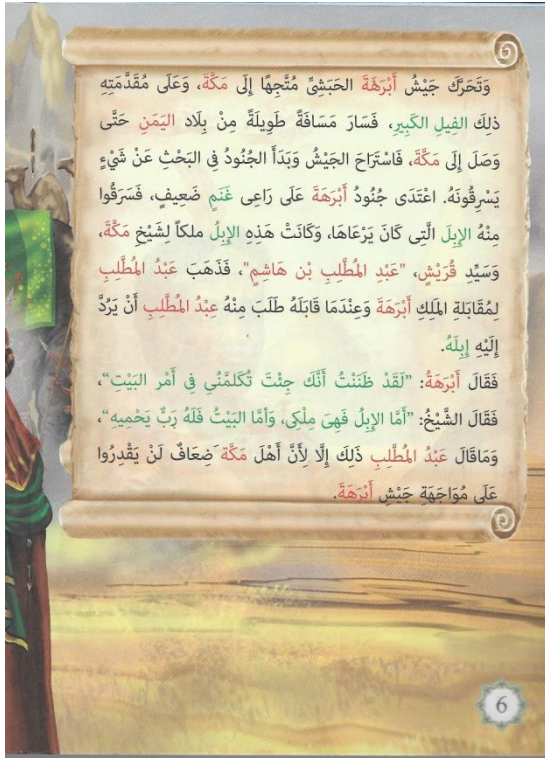 وَتَحَرَّكَ جَيْشُ أَبْرَهَةَ الحَبَشِىِّ مُتَّجِهًا إِلَى مَكَّةَ، وَعَلَى مُقَدَّمَتِهِ
ذلِكَ الفِيلِ الكَبِيرِ، فَسَارَ مَسَافَةً طَوِيلَةً مِنْ بِلَاد اليَمَنِ حَتَّى
وَصَلَ إِلَى مَكَّةَ، فَاسْتَرَاحَ الجَيْشُ وَبَدَأَ الجُنُودُ فِى البَحْثِ عَنْ شَيْءٍ
يَسْرِقُونَهُ. اعْتَدَى جُنُودُ أَبْرَهَةَ عَلَى رَاعِى غَنَمٍ ضَعِيفٍ، فَسَرَقُوا
مِنْهُ الإِبِلَ الَّتِى كَانَ يَرْعَاهَا، وَكَانَتْ هَذِهِ الإِبِلُ ملكاً لِشَيْخِ مَكَّةَ،
وَسَيِّدِ قُرَيْشٍ، "عَبْدِ المُطَّلِبِ بْن هَاشِمٍ"، فَذَهَبَ عَبْدُ المُطَّلِبِ
لِمُقَابَلةِ المَلِكِ أَبْرَهَةَ وَعِنْدَمَا قَابَلَهُ طَلَبَ مِنْهُ عِبْدُ المُطَّلِبِ أَنْ يَرُدَّ
إِلَيْهِ إِبِلَهُ.
فَقَالَ أَبْرَهَةُ: "لَقَدْ ظَنَنْتُ أَنَّكَ جِئْتَ تُكَلمُنِي فِى أَمْر البَيْتِ"،
فَقَالَ الشَّيْخُ: "أَمَّا الإِبِلُ فَهِىَ مِلْكِى، وَأَمَّا البَيْتُ فَلَهُ رَبٌّ يَحْمِيه"،
وَمَاقَالَ عَبْدُ المُطَّلِبِ ذَلِكَ إِلَّا لِأَنَّ أَهْلَ مَكَّةَ ضِعَافٌ لَنْ يَقْدِرُوا
عَلَى مُوَاجَهَةِ جَيْشِ أَبْرَهَةَ.
6